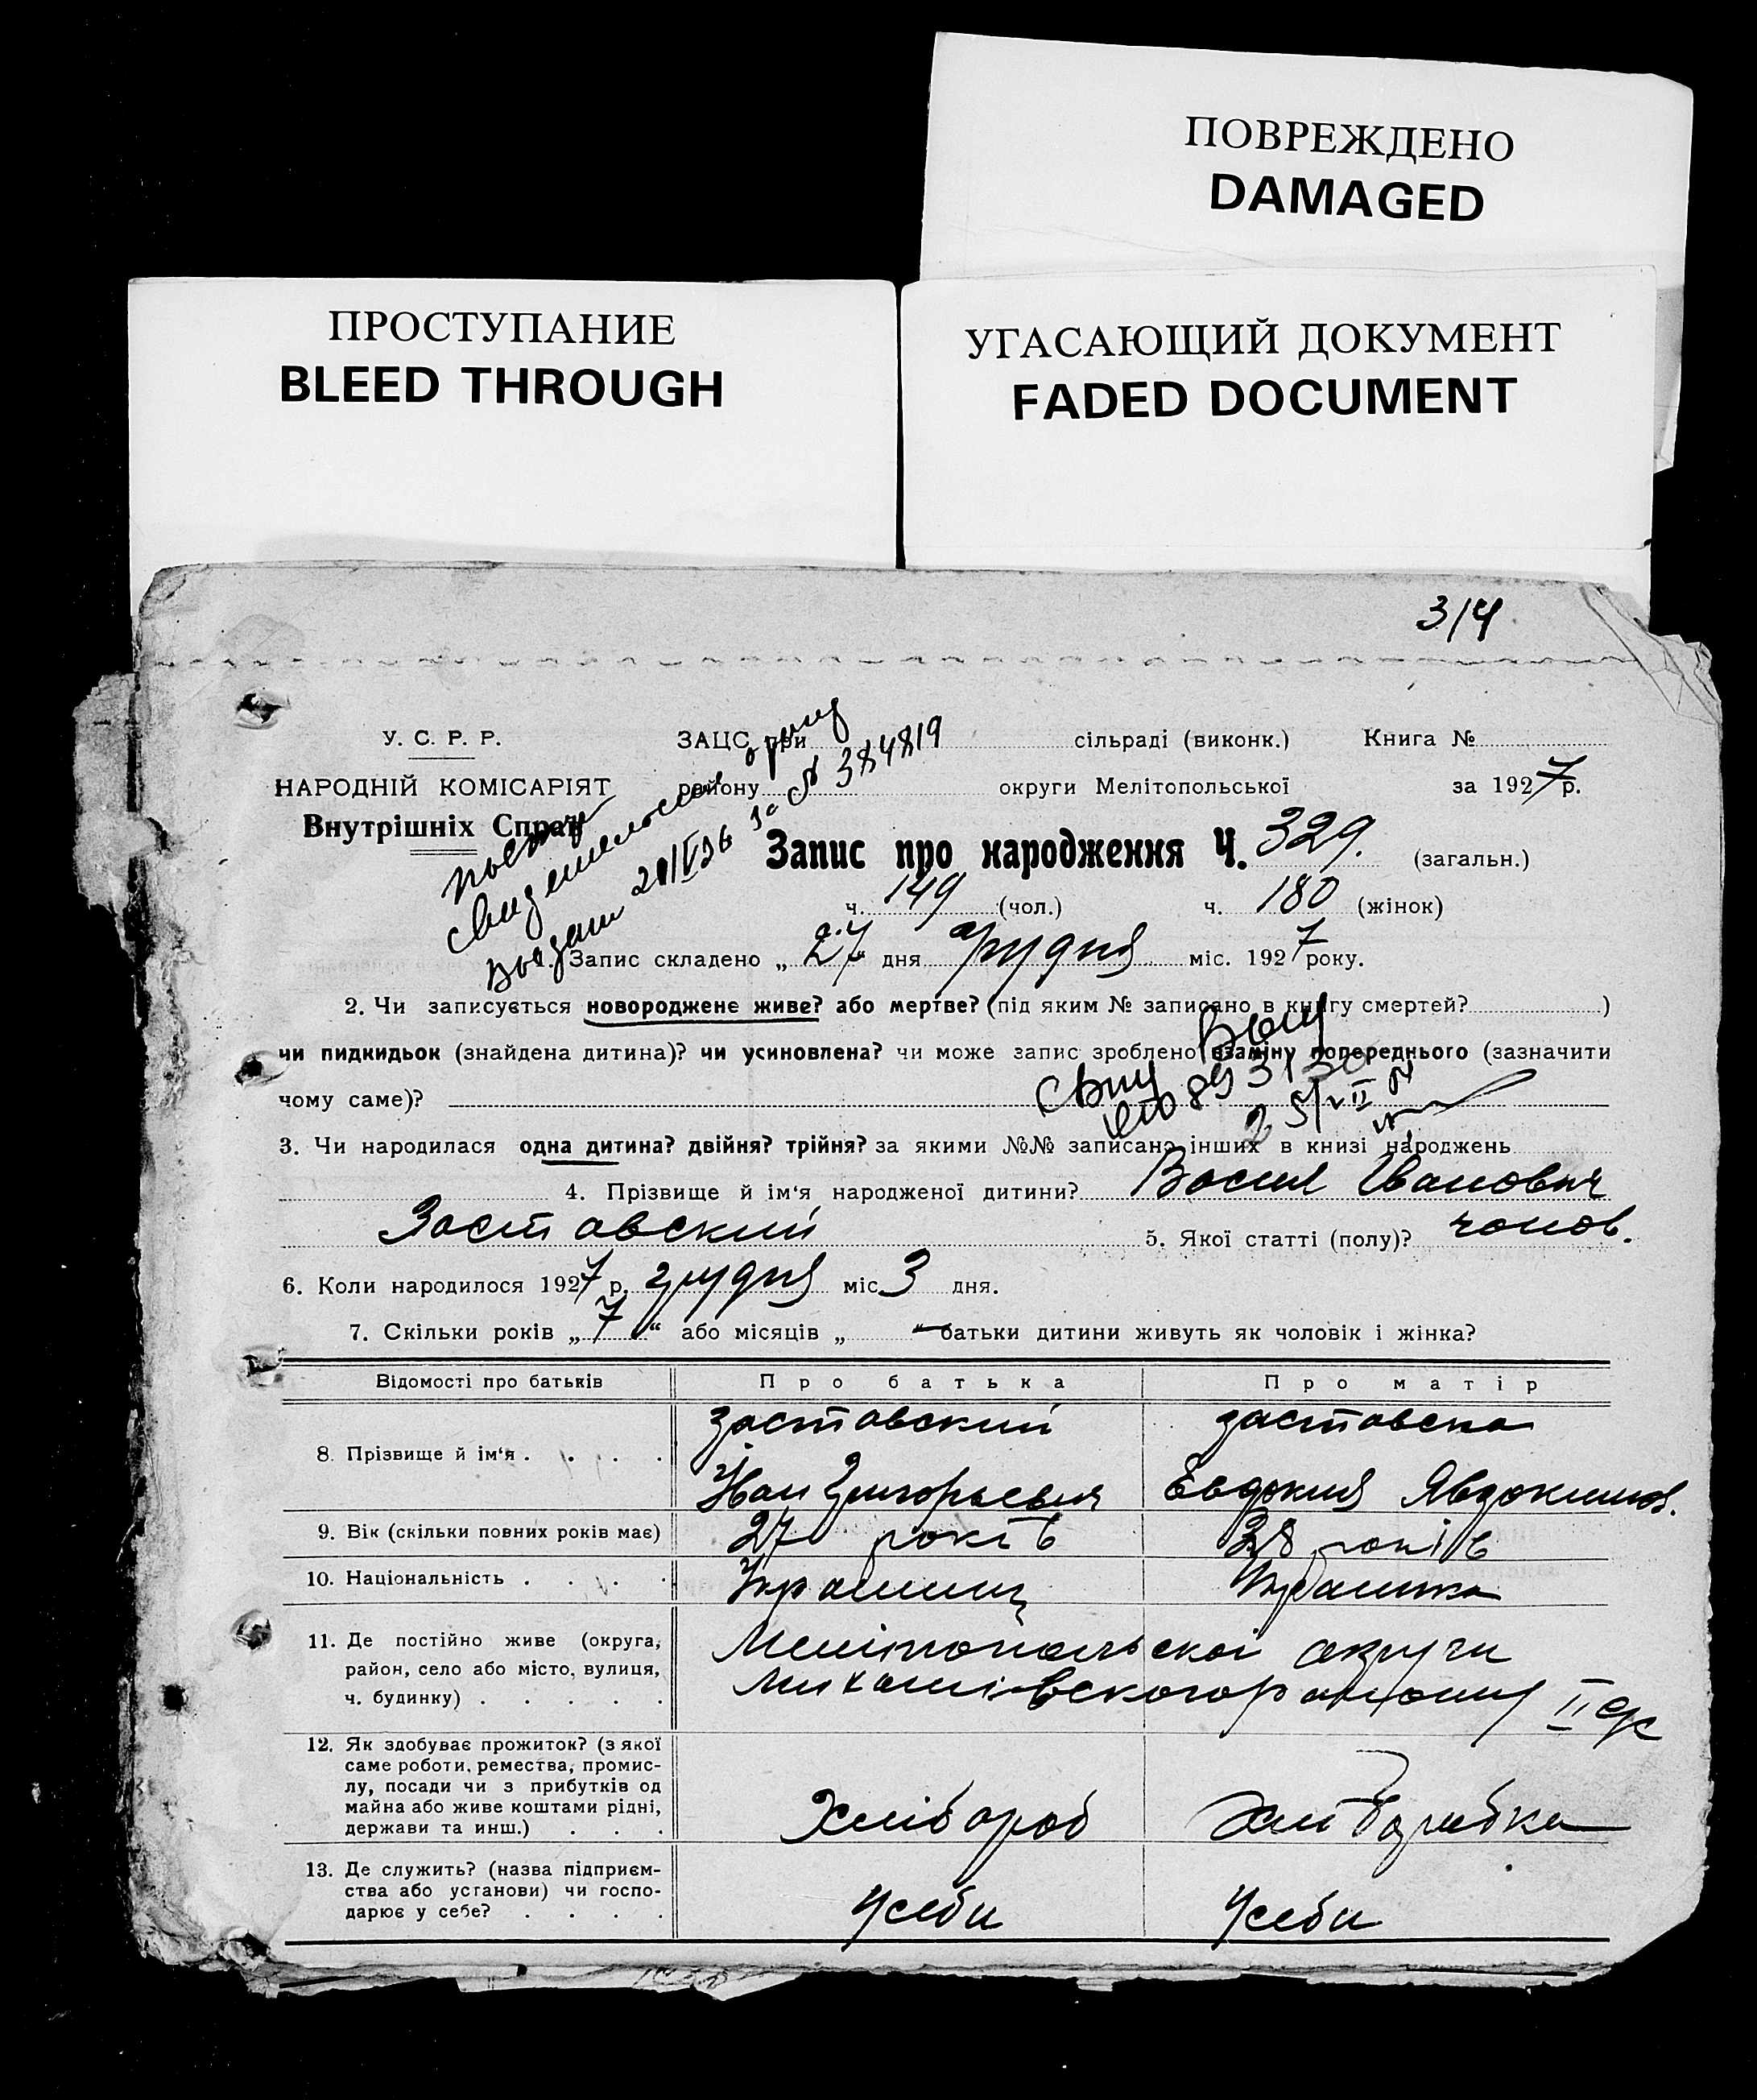 ПОВРЕЖДЕНО
DAMAGED
ПРОСТУПАНИЕ
BLEED THROUGH
УГАСАЮЩИЙ ДОКУМЕНТ
FADED DOCUMENT
314
У. С. Р. Р. ЗАЦС при сільраді (виконк.) Книга №
НАРОДНІЙ КОМІСАРІЯТ району округи Мелітопольської за 1927 р.
Внутрішніх Справ
№ 384819
Запис про народження Ч. 329. (загальн.)
ч. 149 (чол.) ч. 180 (жінок)
1. Запис складено „ 27 дня грудня міс. 1927 року.
2. Чи записується новороджене живе? або мертве? (під яким № записано в книгу смертей? )
чи пидкидьок (знайдена дитина)? чи усиновлена? чи може запис зроблено взаміну попереднього (зазначити
чому саме)?
3. Чи народилася одна дитина? двійня? трійня? за якими №№ записано інших в книзі народжень
4. Прізвище й ім'я народженої дитини? Василь Іванович
Заставский 5. Якої статті (полу)? чолов.
6. Коли народилося 1927 р. грудня міс. 3 дня.
7. Скільки років „ 7 “ або місяців „ “ батьки дитини живуть як чоловік і жінка?
Відомості про батьків Про батька Про матір
заставский заставска
8. Прізвище й ім'я . . . . .
Іван Григорьевич Евдокия Явдокимов.
9. Вік (скільки повних років має) 27 років 28 років
10. Національність . . . . Українец Українка
11. Де постійно живе (округа, Мелітопольскоі округи
район, село або місто, вулиця, Михайлівского району II
ч. будинку) . . . . .
12. Як здобуває прожиток? (з якої
саме роботи, ремества, промис-
лу, посади чи з прибутків од
майна або живе коштами рідні, Хлібороб Хлiборобка
держави та инш.) . . .
13. Де служить? (назва підприєм-
ства або установи) чи госпо- Усеби Усеби
дарює у себе? . . . .